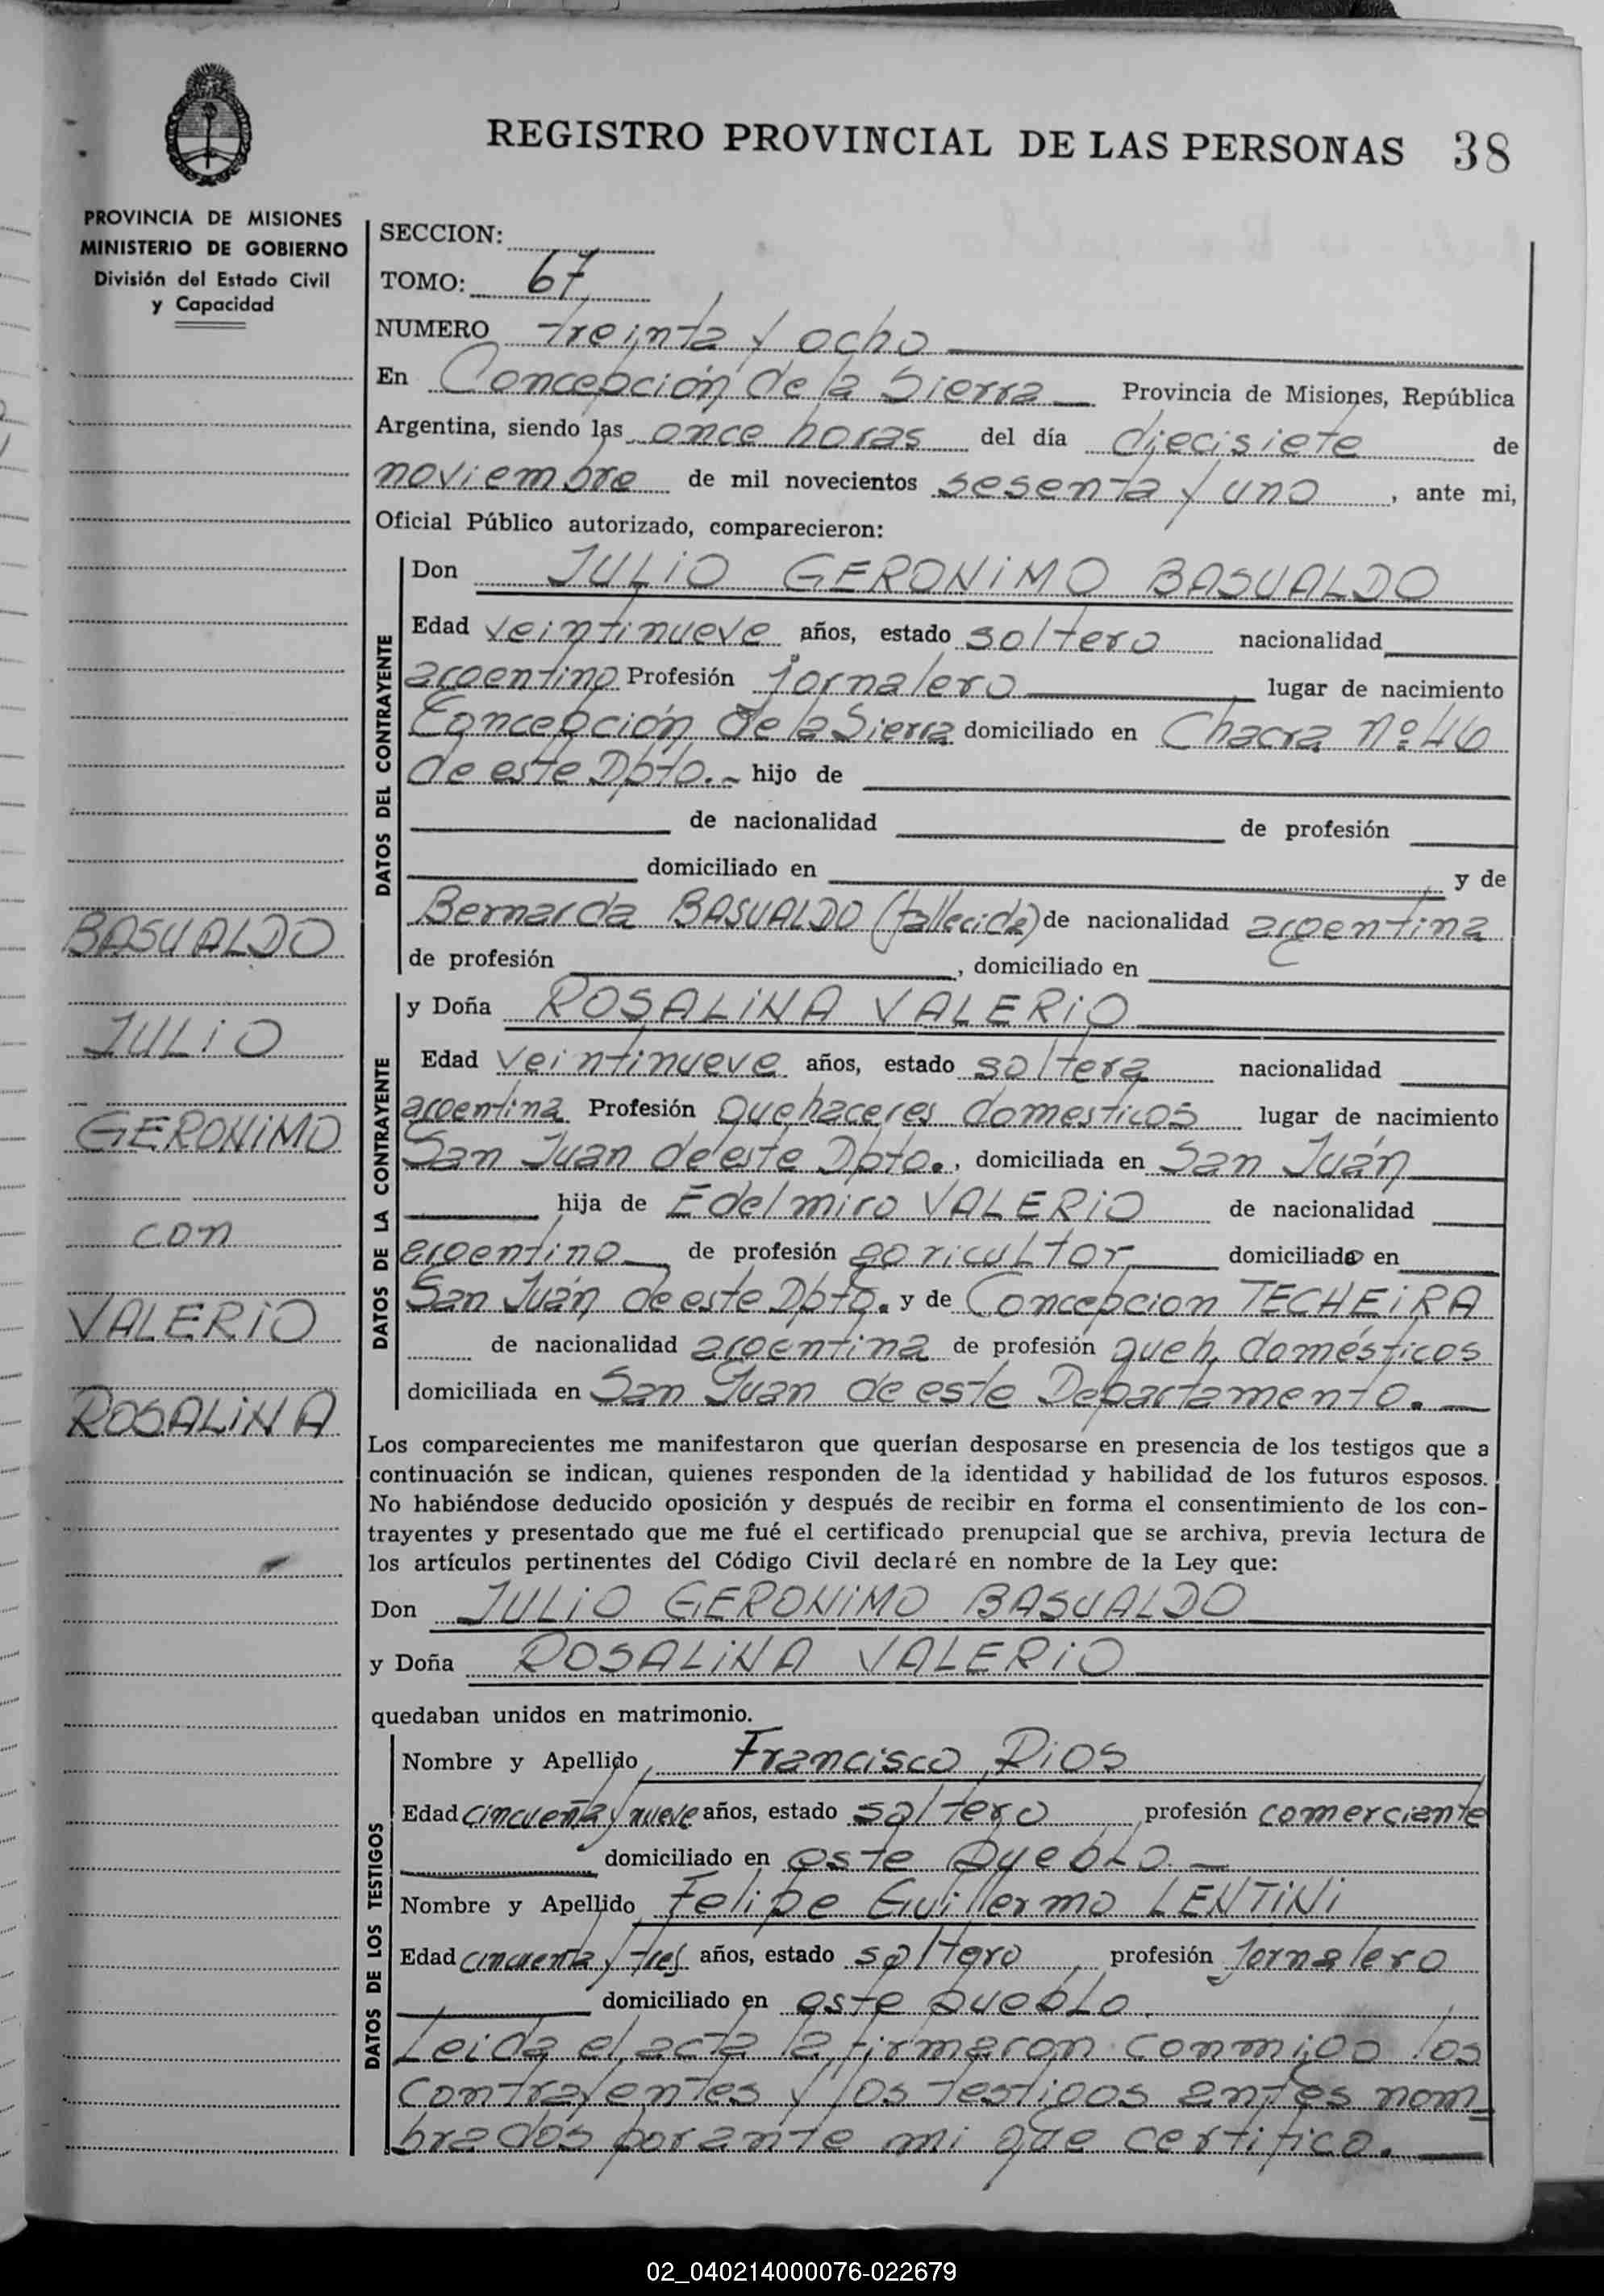 REGISTRO PROVINCIAL DE LAS PERSONAS 38
PROVINCIA DE MISIONES
MINISTERIO DE GOBIERNO
División del Estado Civil
y Capacidad
BASUALDO
JULIO
GERONIMO
con
VALERIO
ROSALINA
SECCION:
TOMO: 67
NUMERO treinta y ocho
En Concepción de la Sierra Provincia de Misiones, República
Argentina, siendo las once horas del día diecisiete de
noviembre de mil novecientos sesenta y uno, ante mi,
Oficial Público autorizado, comparecieron:
DATOS DEL CONTRAYENTE
Don JULIO GERONIMO BASUALDO
Edad veintinueve años, estado soltero nacionalidad
argentino Profesión jornalero lugar de nacimiento
Concepción de la Sierra domiciliado en Chacra Nº 46
de este Dpto.- hijo de
de nacionalidad de profesión
domiciliado en y de
Bernarda BASUALDO (fallecida) de nacionalidad argentina
de profesión , domiciliado en
DATOS DE LA CONTRAYENTE
y Doña ROSALINA VALERIO
Edad veintinueve años, estado soltera nacionalidad
argentina Profesión quehaceres domesticos lugar de nacimiento
San Juan de este Dpto., domiciliada en San Juán
hija de Edelmiro VALERIO de nacionalidad
argentino de profesión agricultor domiciliado en
San Juán de este Dpto. y de Concepcion TECHEIRA
de nacionalidad argentina de profesión queh. domésticos
domiciliada en San Juan de este Departamento.
Los comparecientes me manifestaron que querían desposarse en presencia de los testigos que a
continuación se indican, quienes responden de la identidad y habilidad de los futuros esposos.
No habiéndose deducido oposición y después de recibir en forma el consentimiento de los con-
trayentes y presentado que me fué el certificado prenupcial que se archiva, previa lectura de
los artículos pertinentes del Código Civil declaré en nombre de la Ley que:
Don JULIO GERONIMO BASUALDO
y Doña ROSALINA VALERIO
quedaban unidos en matrimonio.
DATOS DE LOS TESTIGOS
Nombre y Apellido Francisco RIOS
Edad cincuenta y nueve años, estado soltero profesión comerciante
domiciliado en este pueblo
Nombre y Apellido Felipe Guillermo LENTINI
Edad cincuenta y tres años, estado soltero profesión jornalero
domiciliado en este pueblo
Leida el acta la firmaron conmigo los
contrayentes y los testigos antes nom-
brados por ante mi que certifico.
02_040214000076-022679